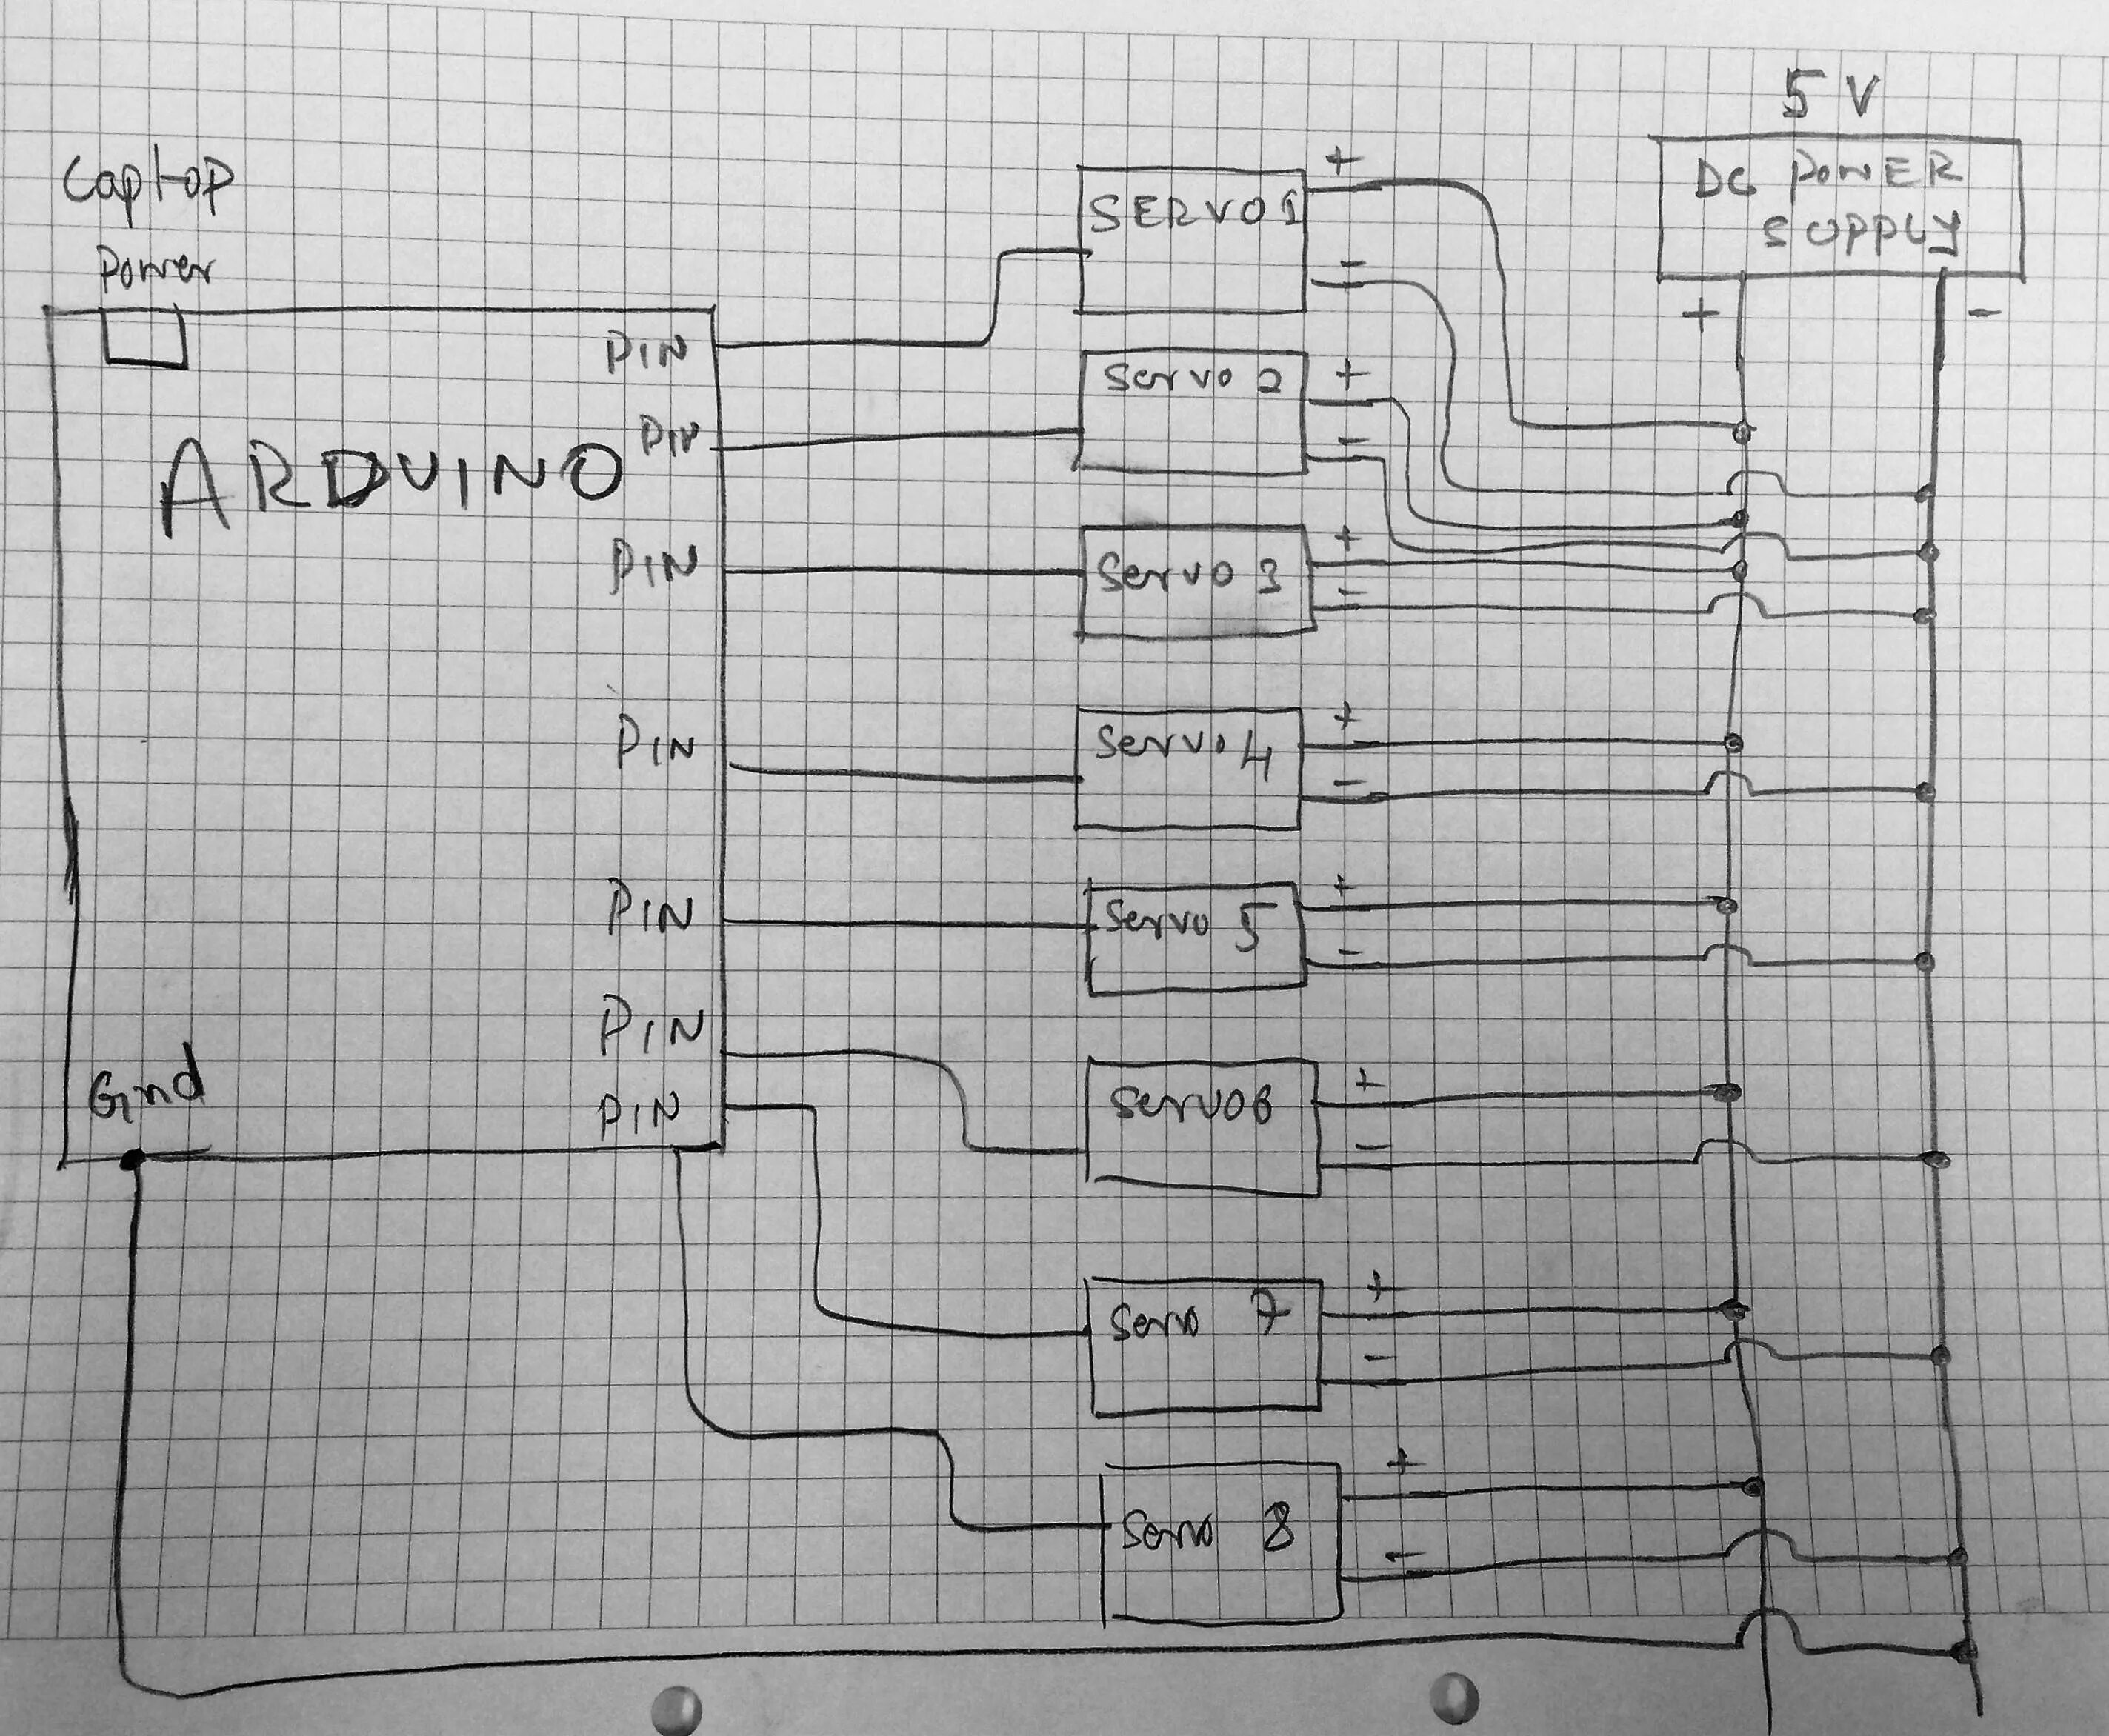 5V
DC POWER
SUPPLY
+
-
Laptop
Power
ARDUINO
PIN
PIN
PIN
PIN
PIN
PIN
PIN
Gnd
SERVO1
+
-
Servo 2
+
-
Servo 3
+
-
Servo 4
+
-
Servo 5
+
-
Servo6
+
-
Servo 7
+
-
Servo 8
+
-